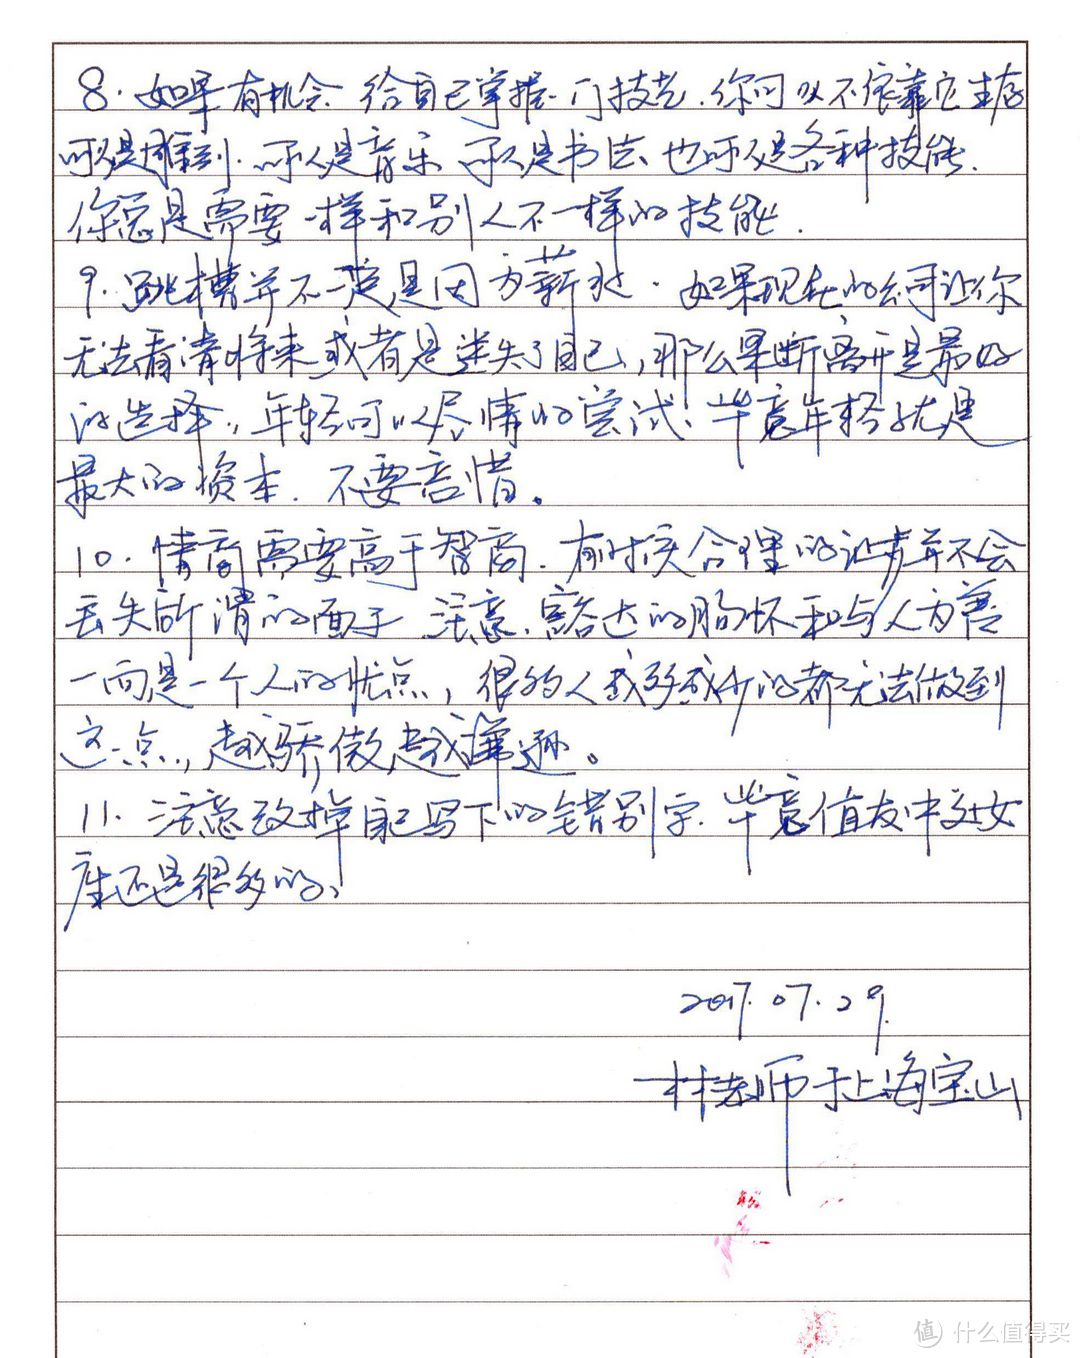 8. 如果有机会 给自己掌握一门技艺. 你可以不依靠它生存
可以是雕刻. 可以是音乐 可以是书法 也可以是各种技能.
你总是需要一样和别人不一样的技能.
9. 跳槽并不一定是因为薪水. 如果现在的公司让你
无法看清将来或者是迷失了自己, 那么果断离开是最好
的选择., 年轻可以尽情的尝试. 毕竟年轻就是
最大的资本. 不要吝惜。
10. 情商需要高于智商. 有时候合理的让步并不会
丢失所谓的面子 注意. 豁达的胸怀和与人为善
一向是一个人的优点, 很多人或多或少的都无法做到
这一点., 越骄傲, 越谦逊。
11. 注意改掉自己写下的错别字. 毕竟值友中处女
座还是很多的,
2017.07.29.
林老师于上海宝山
值 什么值得买